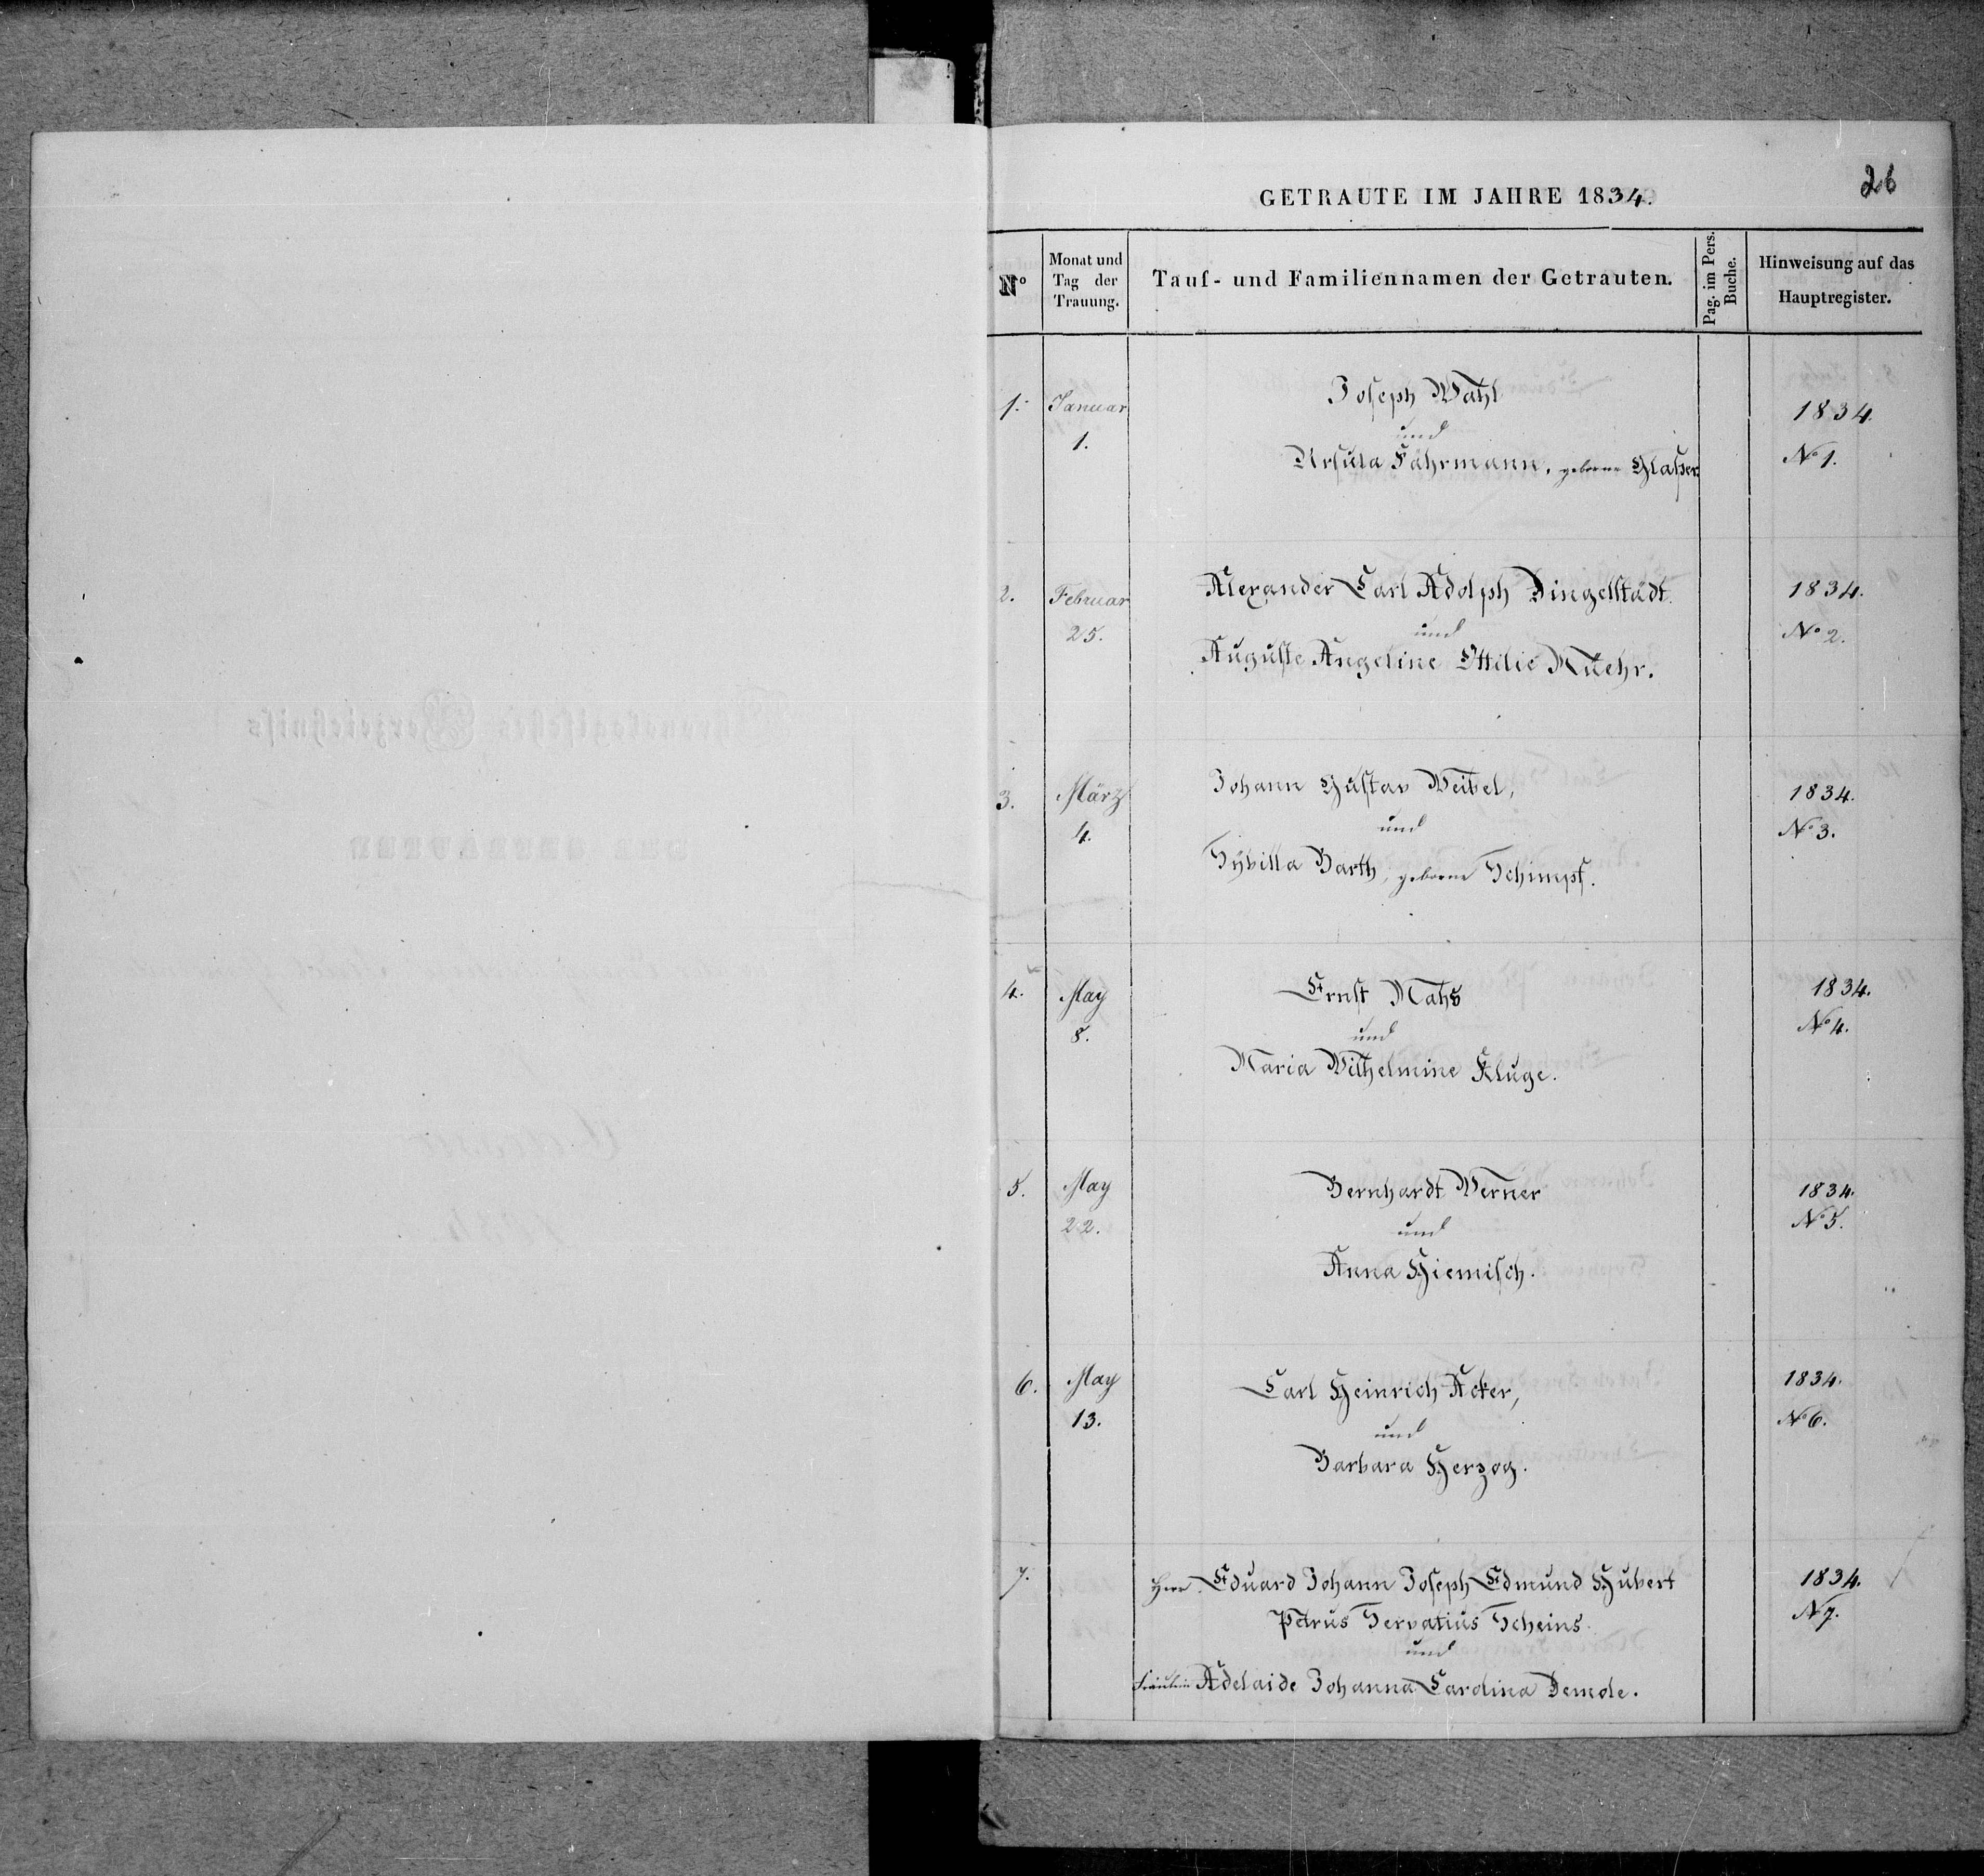 26
GETRAUTE IM JAHRE 1834.
No
Monat und
Tag der
Trauung.
Tauf- und Familiennamen der Getrauten.
Pag. im Pers.
Buche.
Hinweisung auf das
Hauptregister.
1. Januar Joseph Wahl 1834.
und
1. Ursula Fährmann, geborne Glaßer No 1.
2. Februar Alexander Carl Adolph Dingelstädt. 1834.
25. und No 2.
Auguste Angeline Ottilie Muehr.
3. März Johann Gustav Weibel, 1834.
4. und No 3.
Sybilla Barth, geborne Schimpf.
4. May Ernst Mahs 1834.
8. und No 4.
Maria Wilhelmine Kluge.
5. May Bernhardt Werner 1834.
22. und No 5.
Anna Hiemisch.
6. May Carl Heinrich Acker, 1834.
13. und No 6.
Barbara Herzog.
7. Herr Eduard Johann Joseph Edmund Hubert 1834.
Petrus Servatius Scheins No 7.
und
Fräulein Adelaide Johanna Carolina Demole.
Chronologisches Verzeichniss
DER GETRAUTEN
1834